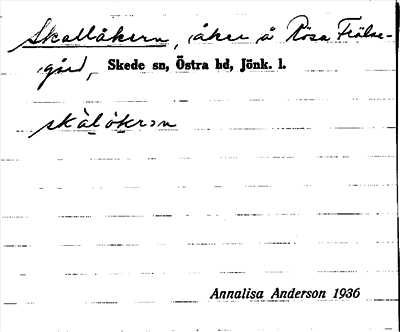 Skallåkern, åker å Rösa Frälse-
gård, Skede sn, Östra hd, Jönk. l.
Annalisa Anderson 1936